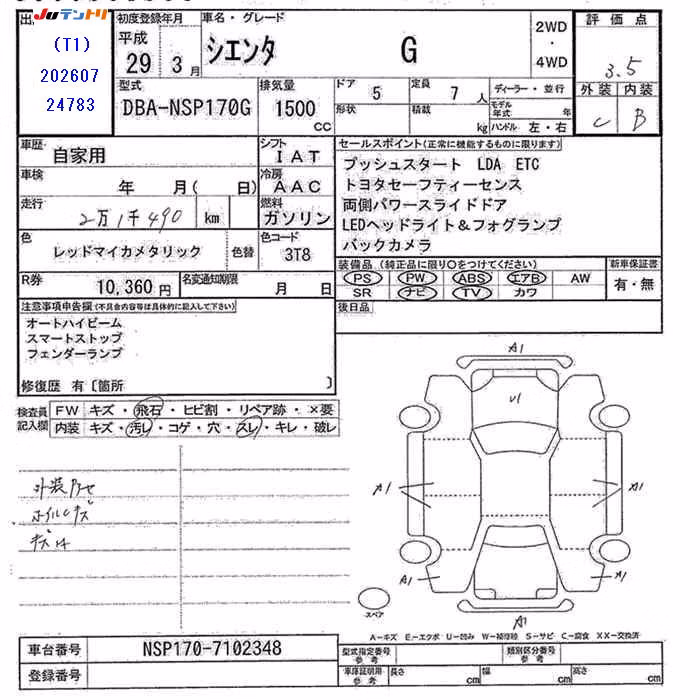 出
JUテントリ
(T1)
202607
24783
初度登録年月
平成
29 3月
車名・グレード
シエンタ G
2WD
・
4WD
評価点
3.5
外装 内装
C B
型式
DBA-NSP170G
排気量
1500
cc
ドア 5 定員 7人
形状 積載 kg
ディーラー・並行
モデル年式 年
ハンドル 左・右
車歴 自家用
シフト IAT
車検 年 月( 日)
冷房 AAC
走行 2万1千490 km
燃料 ガソリン
色 レッドマイカメタリック 色替
色コード 3T8
R券 10,360円
名変通知期限 月 日
セールスポイント(正常に機能するものに限ります)
プッシュスタート LDA ETC
トヨタセーフティーセンス
両側パワースライドドア
LEDヘッドライト&フォグランプ
バックカメラ
装備品(純正品に限り○をつけてください)
PS PW ABS エアB AW
SR ナビ TV カワ
新車保証書
有・無
後日品
注意事項申告欄(不具合内容等は具体的に記入して下さい)
オートハイビーム
スマートストップ
フェンダーランプ
修復歴 有〔箇所 〕
検査員
記入欄
FW キズ・飛石・ヒビ割・リペア跡・×要
内装 キズ・汚レ・コゲ・穴・スレ・キレ・破レ
外装
ホイルキズ
キズ
A1
U1
A1
A1
A1
A1
A1
スペア
A－キズ E－エクボ U－凹み W－補修跡 S－サビ C－腐食 XX－交換済
車台番号 NSP170-7102348
登録番号
型式指定番号
参考
類別区分番号
参考
車庫証明用
参考
長さ cm 幅 cm 高さ cm